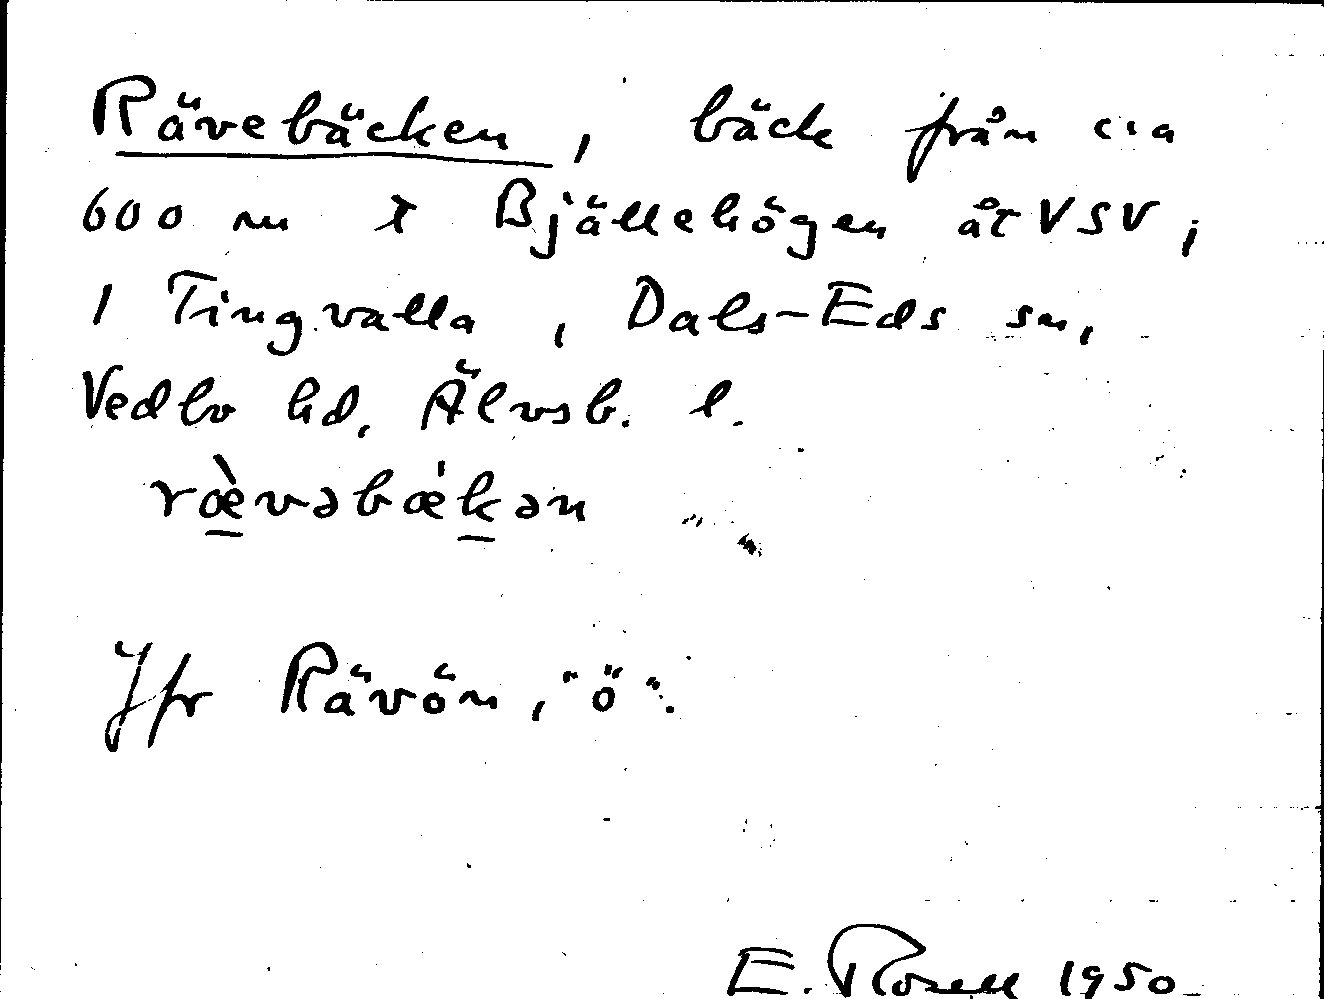 Rävebäcken, bäck från c:a
600 m t Bjällehögen åt VSV,
i Tingvalla, Dals-Eds sn,
Vedbo hd, Älvsb. l.
ræ̀vəbækən
Jfr Rävön, "ö".
E. Rosell 1950